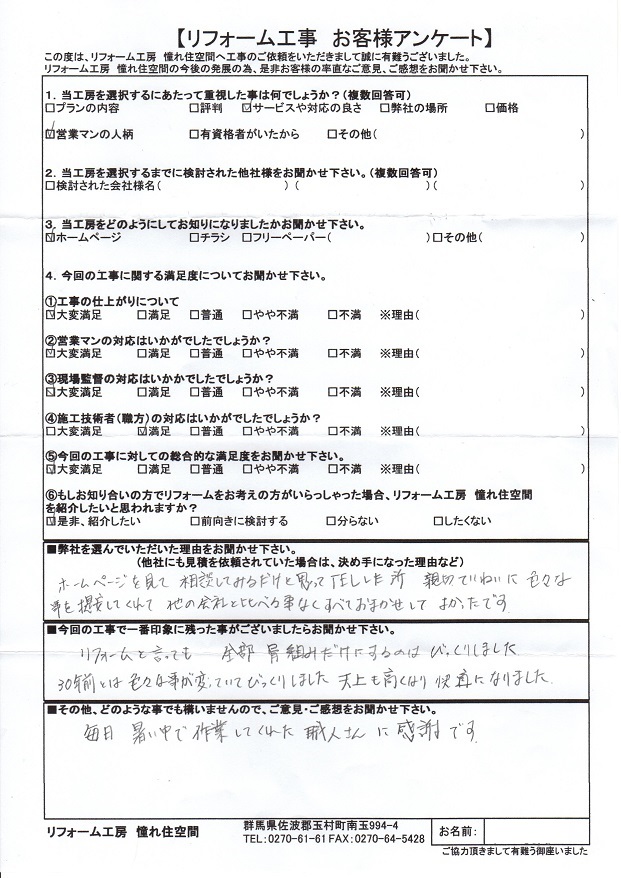 【リフォーム工事 お客様アンケート】
この度は、リフォーム工房 憧れ住空間へ工事のご依頼をいただきまして誠に有難うございました。
リフォーム工房 憧れ住空間の今後の発展の為、是非お客様の率直なご意見、ご感想をお聞かせ下さい。
1. 当工房を選択するにあたって重視した事は何でしょうか?(複数回答可)
□プランの内容 □評判 ☑サービスや対応の良さ □弊社の場所 □価格
☑営業マンの人柄 □有資格者がいたから □その他( )
2. 当工房を選択するまでに検討された他社様をお聞かせ下さい。(複数回答可)
□検討された会社様名( ) ( )( )
3. 当工房をどのようにしてお知りになりましたかお聞かせ下さい。
☑ホームページ □チラシ □フリーペーパー( )□その他( )
4. 今回の工事に関する満足度についてお聞かせ下さい。
①工事の仕上がりについて
☑大変満足 □満足 □普通 □やや不満 □不満 ※理由( )
②営業マンの対応はいかがでしたでしょうか?
☑大変満足 □満足 □普通 □やや不満 □不満 ※理由( )
③現場監督の対応はいかかでしたでしょうか?
☑大変満足 □満足 □普通 □やや不満 □不満 ※理由( )
④施工技術者(職方)の対応はいかがでしたでしょうか?
□大変満足 ☑満足 □普通 □やや不満 □不満 ※理由( )
⑤今回の工事に対しての総合的な満足度をお聞かせ下さい。
☑大変満足 □満足 □普通 □やや不満 □不満 ※理由( )
⑥もしお知り合いの方でリフォームをお考えの方がいらっしゃった場合、リフォーム工房 憧れ住空間
を紹介したいと思われますか?
☑是非、紹介したい □前向きに検討する □分らない □したくない
■弊社を選んでいただいた理由をお聞かせ下さい。
(他社にも見積を依頼されていた場合は、決め手になった理由など)
ホームページを見て 相談してみるだけと思って 所 親切ていねいに 色々な
事を提案してくれて 他の会社と比べる事なくすべておまかせして よかったです
■今回の工事で一番印象に残った事がございましたらお聞かせ下さい。
リフォームと言っても 全部 骨組みだけにするのは びっくりしました
30年前とは 色々な事が変っていてびっくりしました 天上も高くなり 快適になりました
■その他、どのような事でも構いませんので、ご意見・ご感想をお聞かせ下さい。
毎日 暑い中で 作業してくれた 職人さん に 感謝です
リフォーム工房 憧れ住空間
群馬県佐波郡玉村町南玉994-4
TEL:0270-61-61 FAX:0270-64-5428
お名前:
ご協力頂きまして有難う御座いました